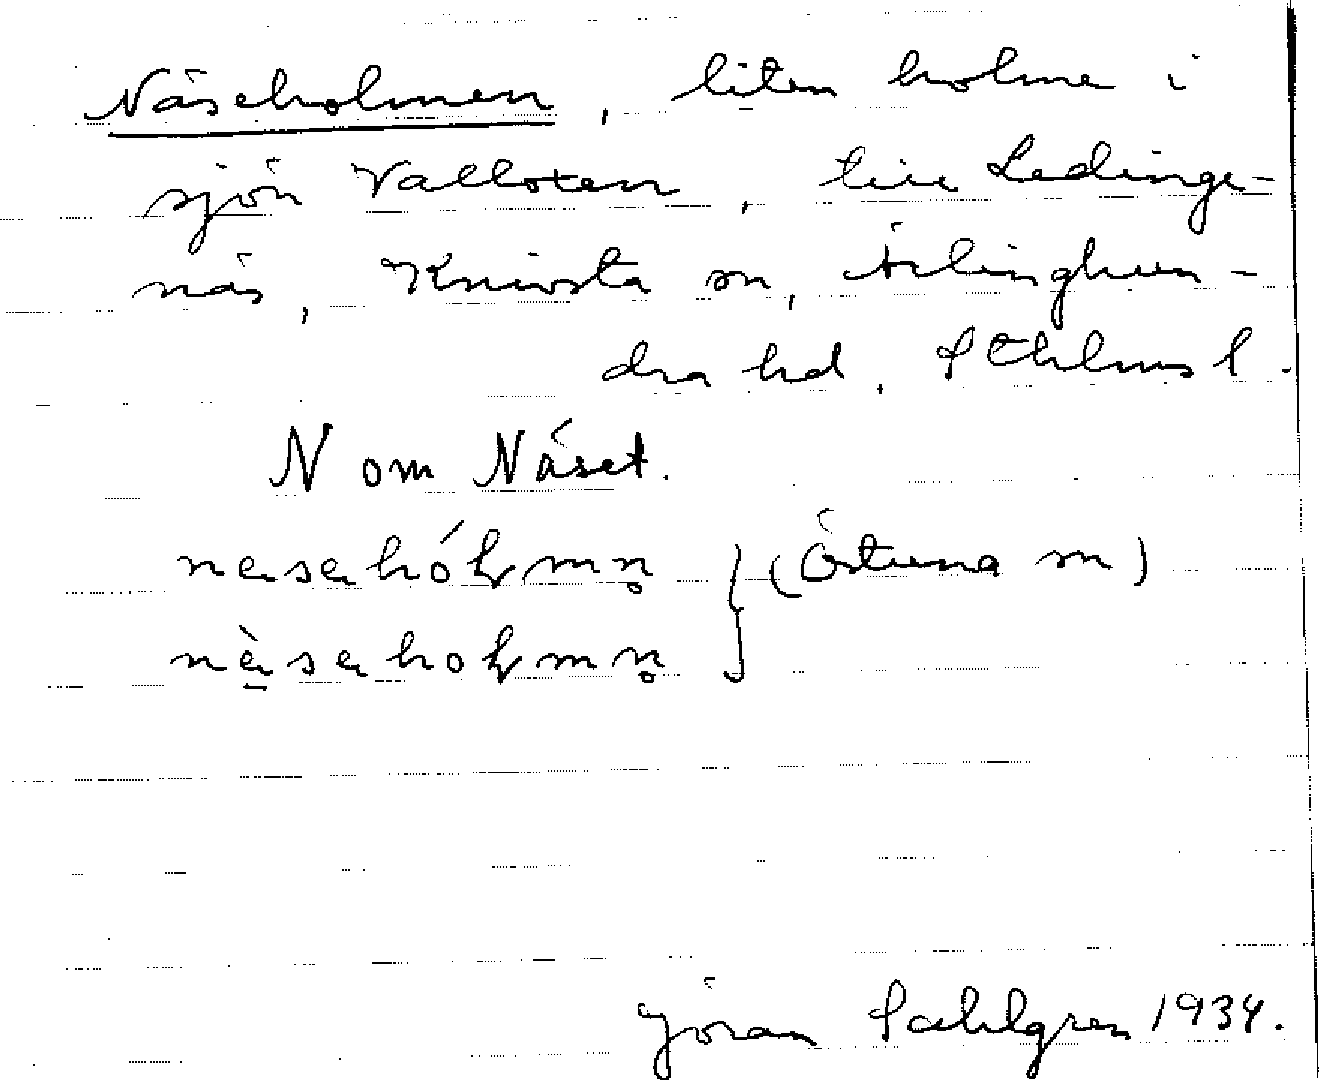 Näseholmen, liten holme i
sjön Valloxen, till Ledinge-
näs, Knivsta sn, Ärlinghun-
dra hd, Sthlms l.
N om Näset.
(Östuna sn)
Jöran Sahlgren 1934.